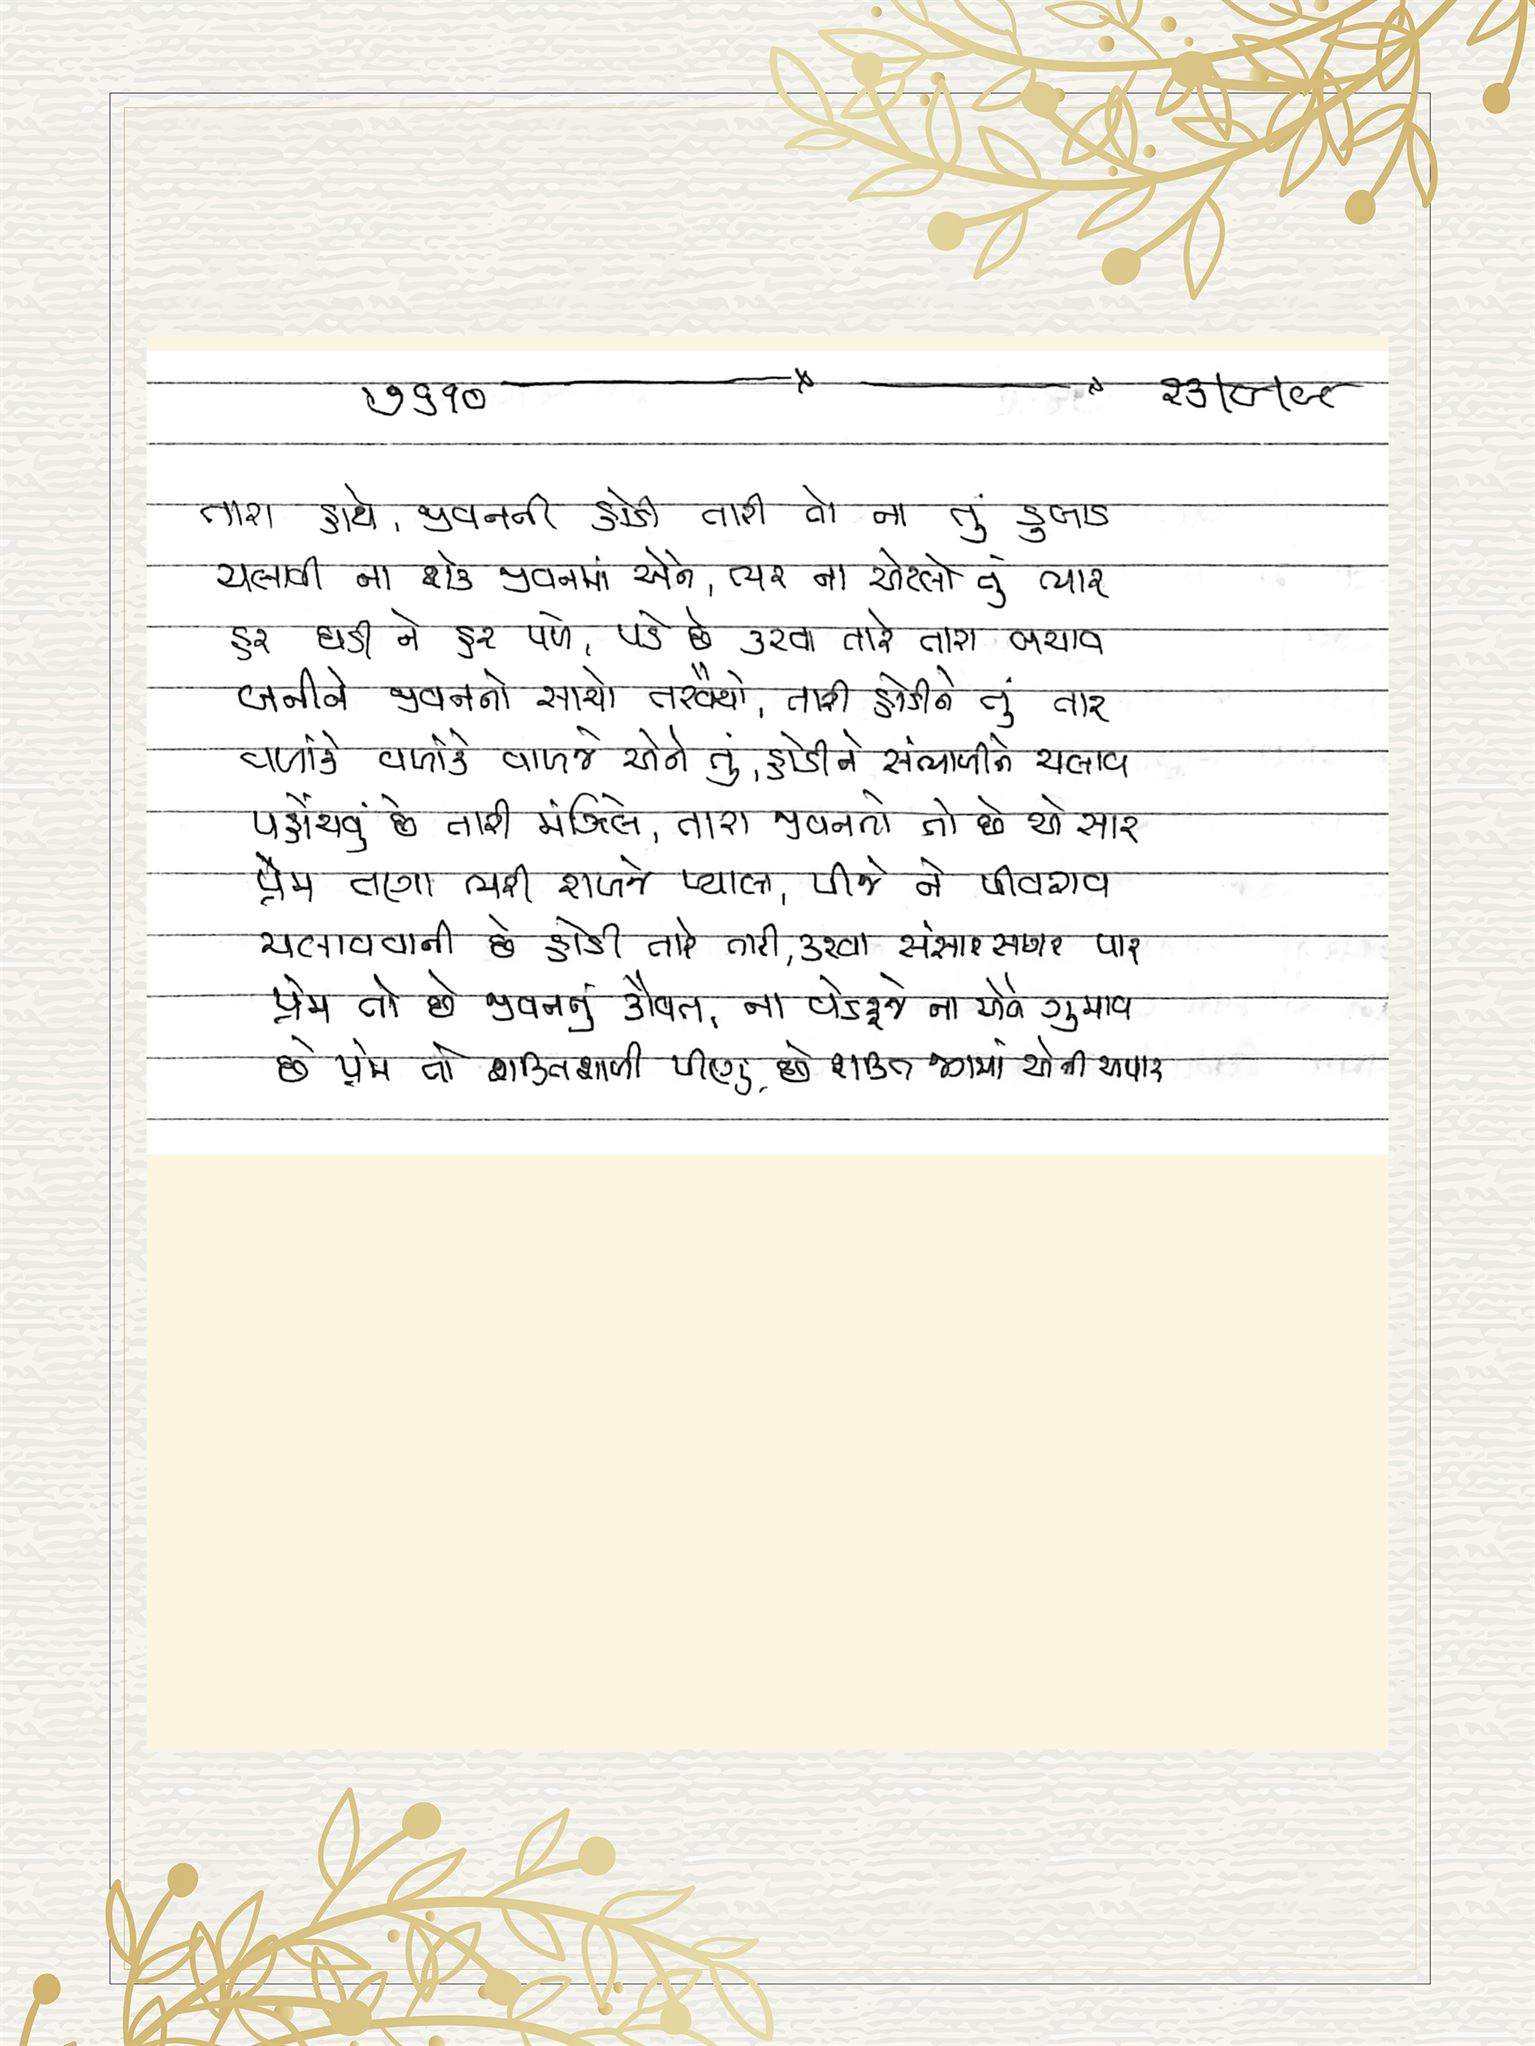 ૭૬૧૦ ૨૩/૯/૯૮
તારા હાથે, જીવનની હોડી તારી તો ના તું ડુબાડ
ચલાવી ના શોક જીવનમાં એને, ભર ના એટલો તું ભાર
હર ઘડી ને હર પળે, પડે છે કરવા તારે તારા બચાવ
બનીને જીવનનો સાચો તરવૈયો, તારી હોડીને તું તાર
વળાંકે વળાંકે વાળજે એને તું, હોડીને સંભાળીને ચલાવ
પહોંચવું છે તારી મંજિલે, તારા જીવનનો તો છે એ સાર
પ્રેમ તણા ભરી રાખજે પ્યાલા, પીજે ને પીવરાવ
ચલાવવાની છે હોડી તારે તારી, કરવા સંસાર સાગર પાર
પ્રેમ તો છે જીવનનું કૌવત, ના વેડફજે ના એને ગુમાવ
છે પ્રેમ તો શક્તિશાળી પીણું, છે શક્તિ જગમાં એની અપાર